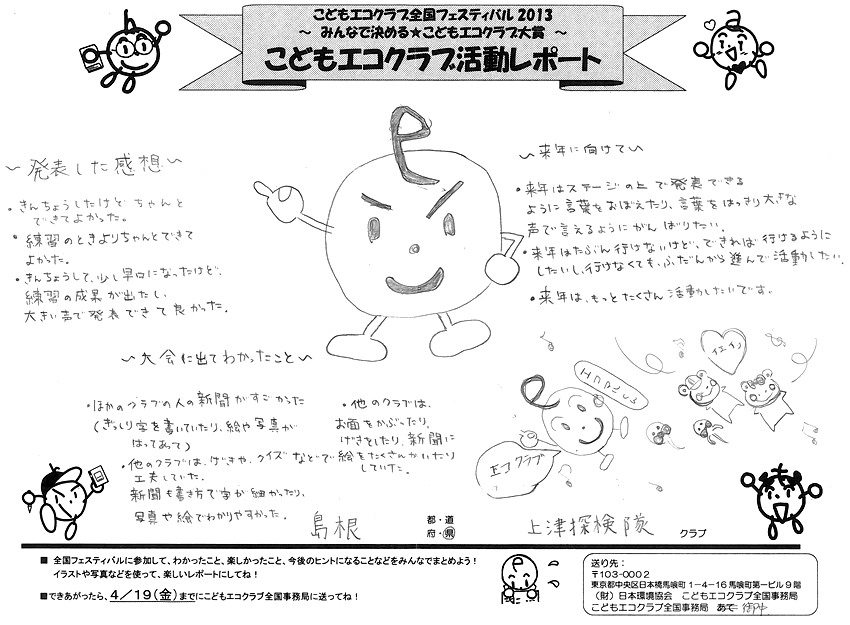 こどもエコクラブ全国フェスティバル 2013
～ みんなで決める★こどもエコクラブ大賞 ～
こどもエコクラブ活動レポート
～発表した感想～
・きんちょうしたけど ちゃんと
できてよかった。
・練習のときよりちゃんとできて
よかった。
・きんちょうして、少し早口になったけど、
練習の成果が出たし、
大きい声で発表できて良かった。
～来年に向けて～
・来年はステージの上で発表できる
ように言葉をおぼえたり、言葉をはっきり大きな
声で言えるようにがんばりたい。
・来年はたぶん行けないけど、できれば行けるように
したいし、行けなくても、ふだんから進んで活動したい。
・来年は、もっとたくさん活動したいです。
～大会に出てわかったこと～
・ほかのクラブの人の新聞がすごかった
(ぎっしり字を書いていたり、絵や写真が
はってあって)
・他のクラブは、げきや、クイズなどで
工夫していた。
新聞も書き方で字が細かったり、
写真や絵でわかりやすかった。
・他のクラブは、
お面をかぶったり、
げきをしたり、新聞に
絵をたくさんかいたり
していた。
イエイ
エコクラブ
島根
都・道
府・県
上津探検隊
クラブ
■ 全国フェスティバルに参加して、わかったこと、楽しかったこと、今後のヒントになることなどをみんなでまとめよう！
イラストや写真などを使って、楽しいレポートにしてね！
■できあがったら、4／19(金)までにこどもエコクラブ全国事務局に送ってね！
送り先：
〒103-0002
東京都中央区日本橋馬喰町1-4-16 馬喰町第一ビル9階
(財)日本環境協会 こどもエコクラブ全国事務局
こどもエコクラブ全国事務局 あて 御中